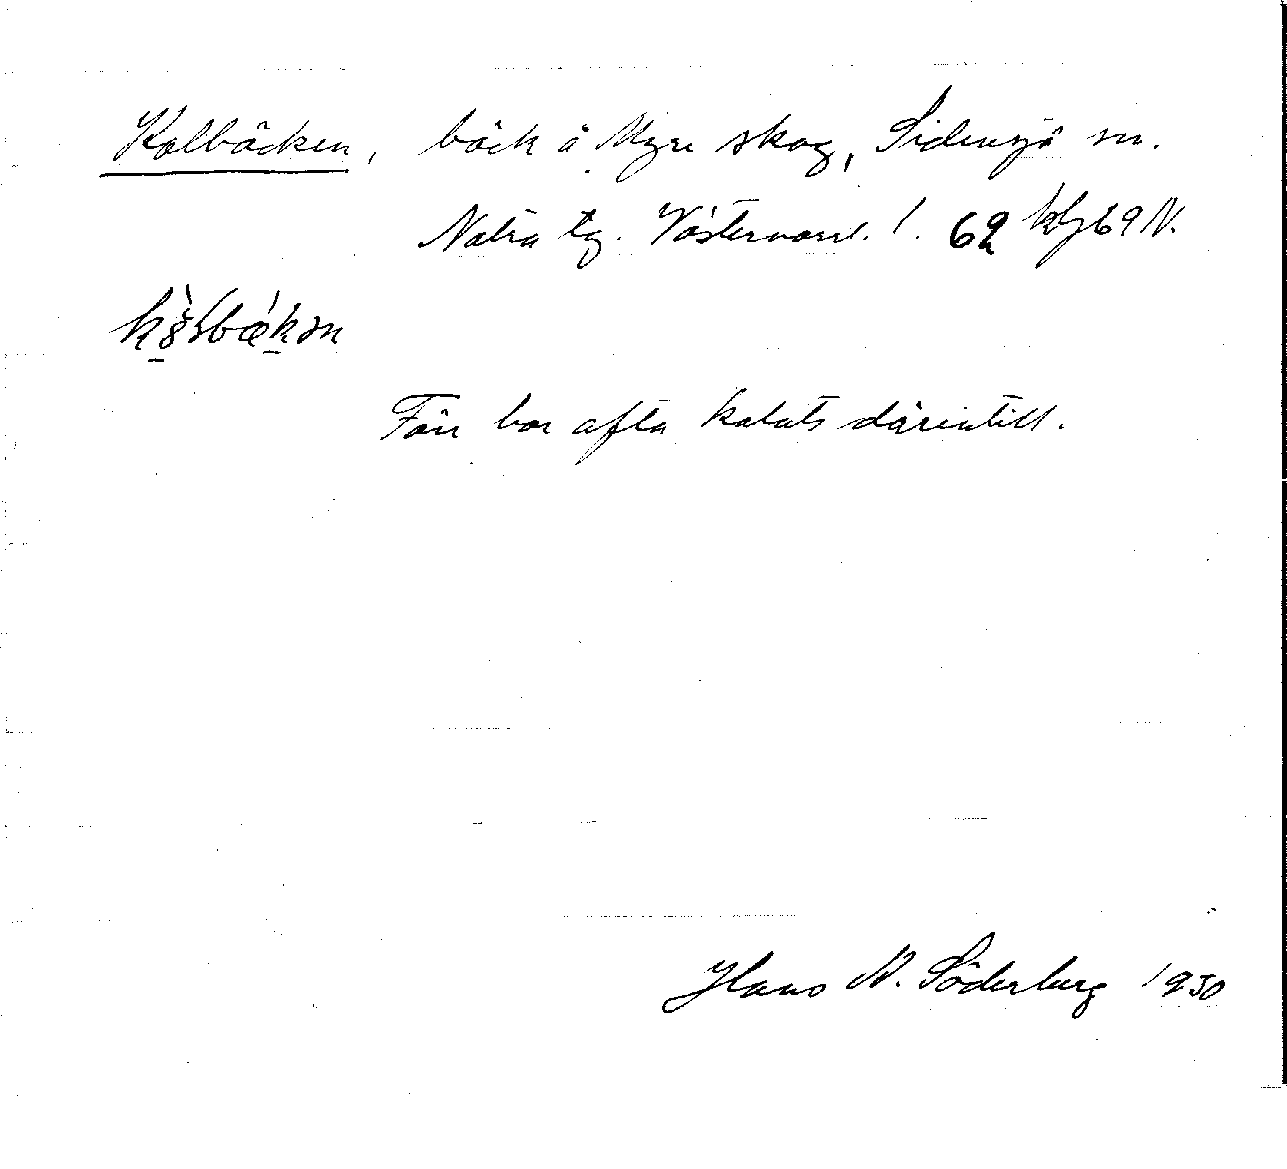 Kolbäcken, bäck å Myre skog, Sidensjö sn.
Nätra tg. Västernorrl. l. 62 69 N.
Förr har ofta kolats därintill.
Hans N. Söderberg 1930